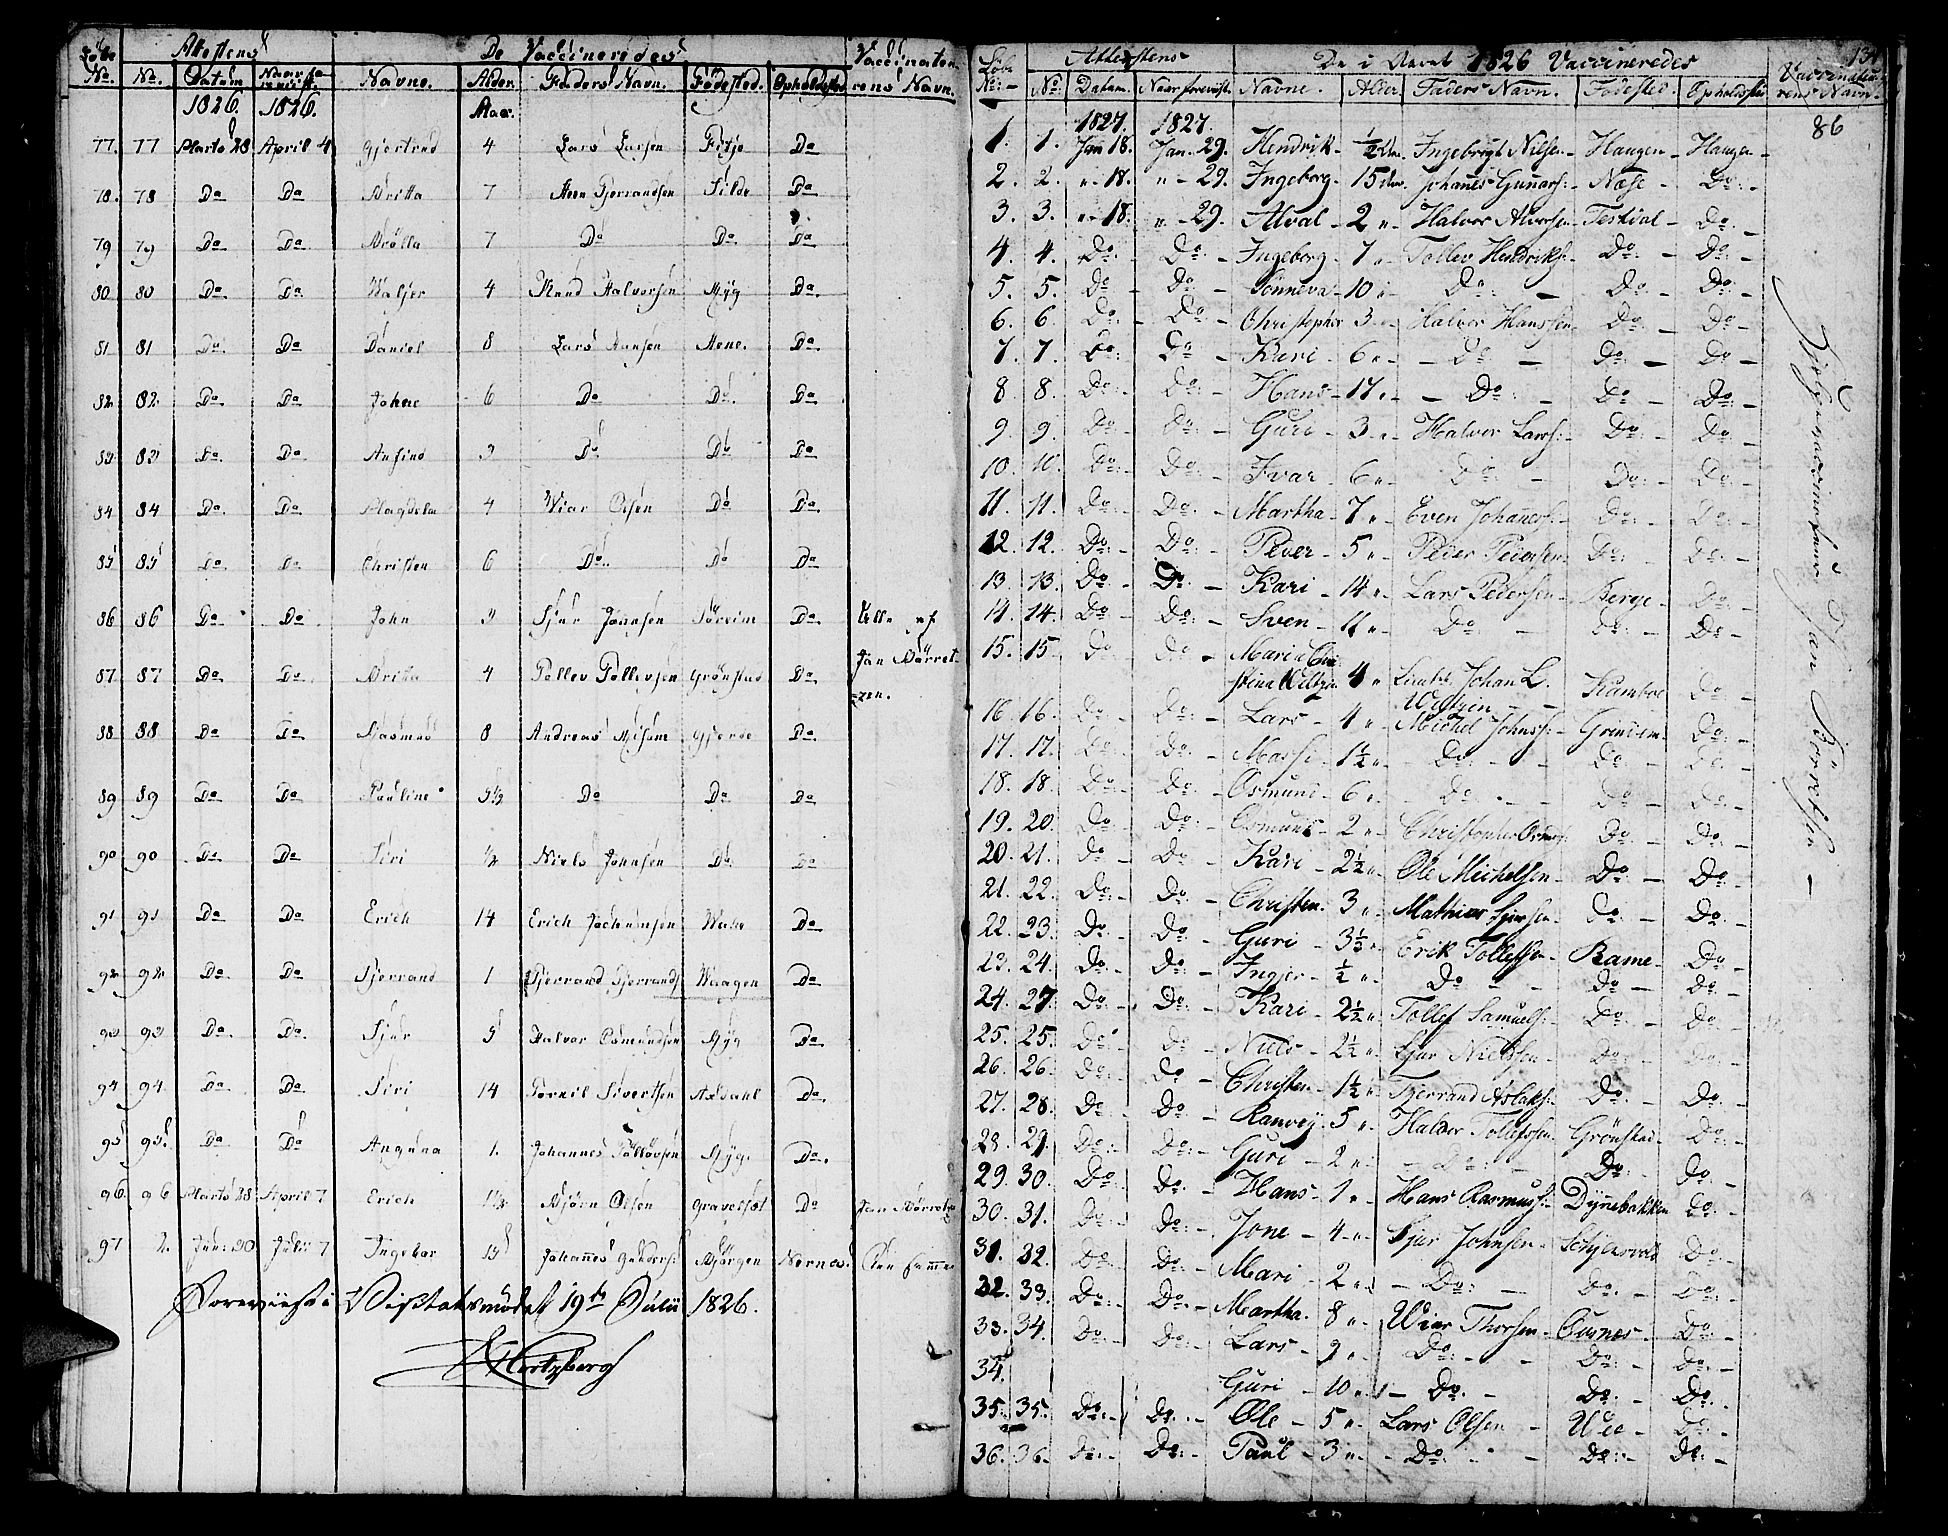 Løbe No. Attestens De Vaccineredes Vaccinateu-
No. Datum Naar fo- revist. Navne. Alder. Faders Navn. Fødested. Opholdssted rens Navn.
1826. 1826. Aar.
77. 77 Marts 28 April 4 Gjertrud 4 Lars Larsen Fitje Do
78. 78 Do Do Britta 7 Sten Tjerrandsen Silde Do
79 79 Do Do Brölla 7 Do Do Do
80 80 Do Do Waljer 4 Knud Halvorsen Myg Do
81 81 Do Do Daniel 8 Lars Hansen Do
82 82. Do Do Johne 6 Do Do Do
83 83 Do Do Anfind 3 Do Do Do
84 84 Do Do Magdela 4 Wiar Olsen Do Do
85 85 Do Do Christen 6 Do Do Do
86 86 Do Do John 3 Sjur Johnsen Do Alle af
87. 87 Do Do Brita 4 Tollev Tollevsen Grönstad Do Jan Börret-
zen.
88 88 Do Do Rasmus 8 Andreas Gjerde Do
89 89 Do Do Pauline 5½ Do Do Do
90 90 Do Do Siri ½ Niels Johnsen Do Do
91 91 Do Do Erich 14 Erich Jochumsen Do
92 92 Do Do Tjerrand 1 Tjerrand Tjerrands Waagen Do
93 93 Do Do Sjur 5 Halvor Osmundsen Myg Do
94 94. Do Do Siri 14 Tornil Sivertsen Axdahl Do
95 95 Do Do Anguna 1. Johannes Tollevsen Myg. Do
96. 96 Marts 28 April 7 Erich 1½ Björn Olsen Do Jan Börretz
97 2. Juni 30 Julii 7 Ingebor 15 Johannes Gunders: Björgen Den samme
Foreviist i Visitatsmödet 19de Julii 1826.
Hertzberg
131
Løbe Attestens De i Aaret 1826 Vaccineredes Vaccinateu-
No: No. Datum. Naar foreviist Navne. Alder Faders Navn. Fødested. Opholdssted rens Navn.
86
1827. 1827.
1. 1. Jan 18. Jan. 29. Hendrik ½ Aar. Ingebrigt Nilsen Haugen Haugen
2. 2. " 18. " 29. Ingeborg 15 Aar. Johanes Gunars: Næse Do
3. 3. " 18. " 29. Alval 2 " Halvor Alvorsen Testdal Do
4. 4. Do Do Ingeborg 7 " Tollev Hendriks: Do Do
5. 5. Do Do Sonneva 10 " Do Do Do
6. 6. Do Do Christopher 3 " Halvor Hanssen Do Do
7. 7. Do Do Kari 6 " Do Do Do
8 8. Do Do Hans 17 " Do Do Do
9. 9. Do Do Guri 3 " Halver Lars: Do Do
10. 10. Do Do Ivar 6 " Do Do Do
11. 11. Do Do Martha 7 " Even Johaners: Do Do
12. 12. Do Do Peder 5 " Peder Pedersen Do Do
13. 13. Do Do Kari 14 " Lars Pedersen Berge Do
14. 14. Do Do Sven 11 " Do Do Do
15. 15. Do Do Maria Chri-
stina Wiltzn. 4 " Lieut. Johan L.
Wiltzen Do
16. 16. Do Do Lars 4 " Michel Johns: Grindem Do
17. 17. Do Do Massi 1½ " Do Do Do
18. 18. Do Do Osmund 6 " Do Do Do
19. 20. Do Do Osmund 2 " Christopher Osmun: Do Do
20. 21. Do Do Kari 2½ " Ole Michelsen Do Do
21. 22. Do Do Christen 3 " Mathias Sjursen Do Do
22. 23. Do Do Guri 3½ " Erik Tollefsen Rame Do
23. 24. Do Do Inger ½ " Do Do Do
24. 27. Do Do Kari 2½ " Tollef Samuels: Do Do
25. 25. Do Do Niels 2½ " Sjur Nielssen Do Do
26. 26. Do Do Christen 1½ " Tjerrand Aslaks: Do Do
27. 28. Do Do Ranveg 5 " Halver Tollefssen Grönstad Do
28. 29. Do Do Guri 2 " Do Do Do
29. 30. Do Do Hans 1 " Hans Rasmuss: Dynebakken Do
30. 31. Do Do Jone 4 " Sjur Johnsen Do
31. 32. Do Do Mari 2 " Do Do Do
32. 33. Do Do Martha 8 " Wiar Thorsen Ousnes Do
33. 34. Do Do Lars 9 " Do Do Do
34. Guri 10 " Do Do Do
35. 35. Do Do Ole 5 " Lars Olsen Do
36. 36. Do Do Paul 3 " Do Do Do
Hjelpevaccinateur Jan Börretzen